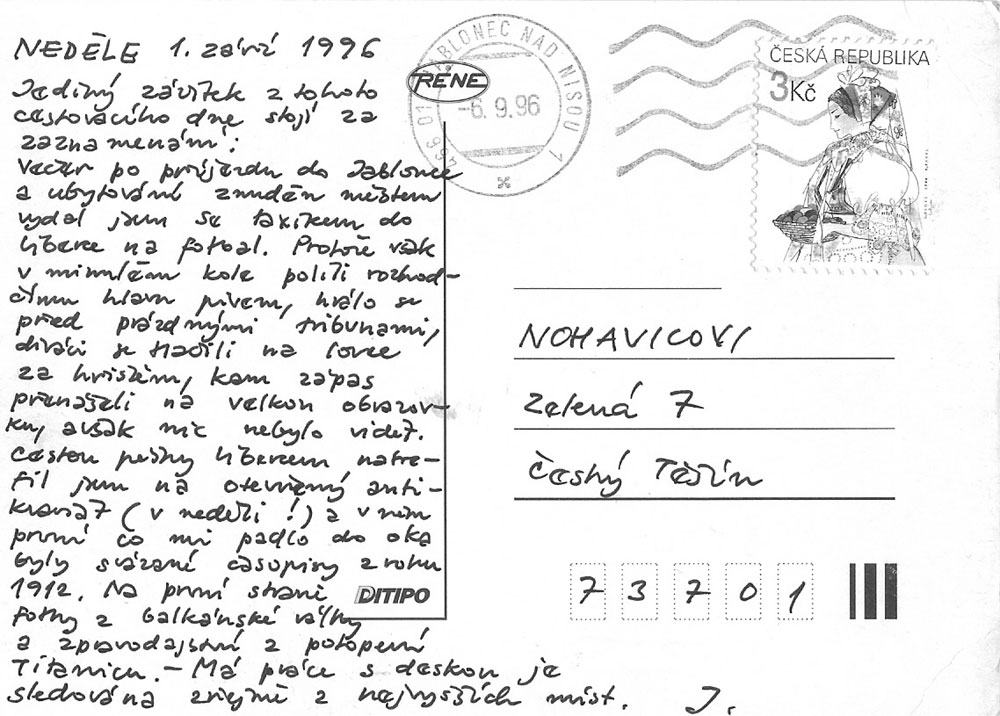 NEDĚLE 1. září 1996
Jediný zážitek z tohoto
cestovacího dne stojí za
zaznamenání:
večer po příjezdu do Jablonce
a ubytování znuděn městem
vydal jsem se taxíkem do
Liberce na fotbal. Protože však
v minulém kole polili rozhod-
čímu hlavu pivem, hrálo se
před prázdnými tribunami,
diváci se tlačili na louce
za hřištěm, kam zápas
přenášeli na velkou obrazov-
ku, avšak nic nebylo vidět.
Cestou pěšky Libercem natre-
fil jsem na otevřený anti-
kvariát (v neděli!) a v něm
první co mi padlo do oka
byly svázané časopisy z roku
1912. Na první straně
fotky z balkánské války
a zpravodajství z potopení
Titanicu. – Má práce s deskou je
sledována zřejmě z nejvyšších míst. J.
RENE
DITIPO
466 01 JABLONEC NAD NISOU 1
-6.9.96
ČESKÁ REPUBLIKA
3Kč
NOHAVICOVI
Zelená 7
Český Těšín
73701